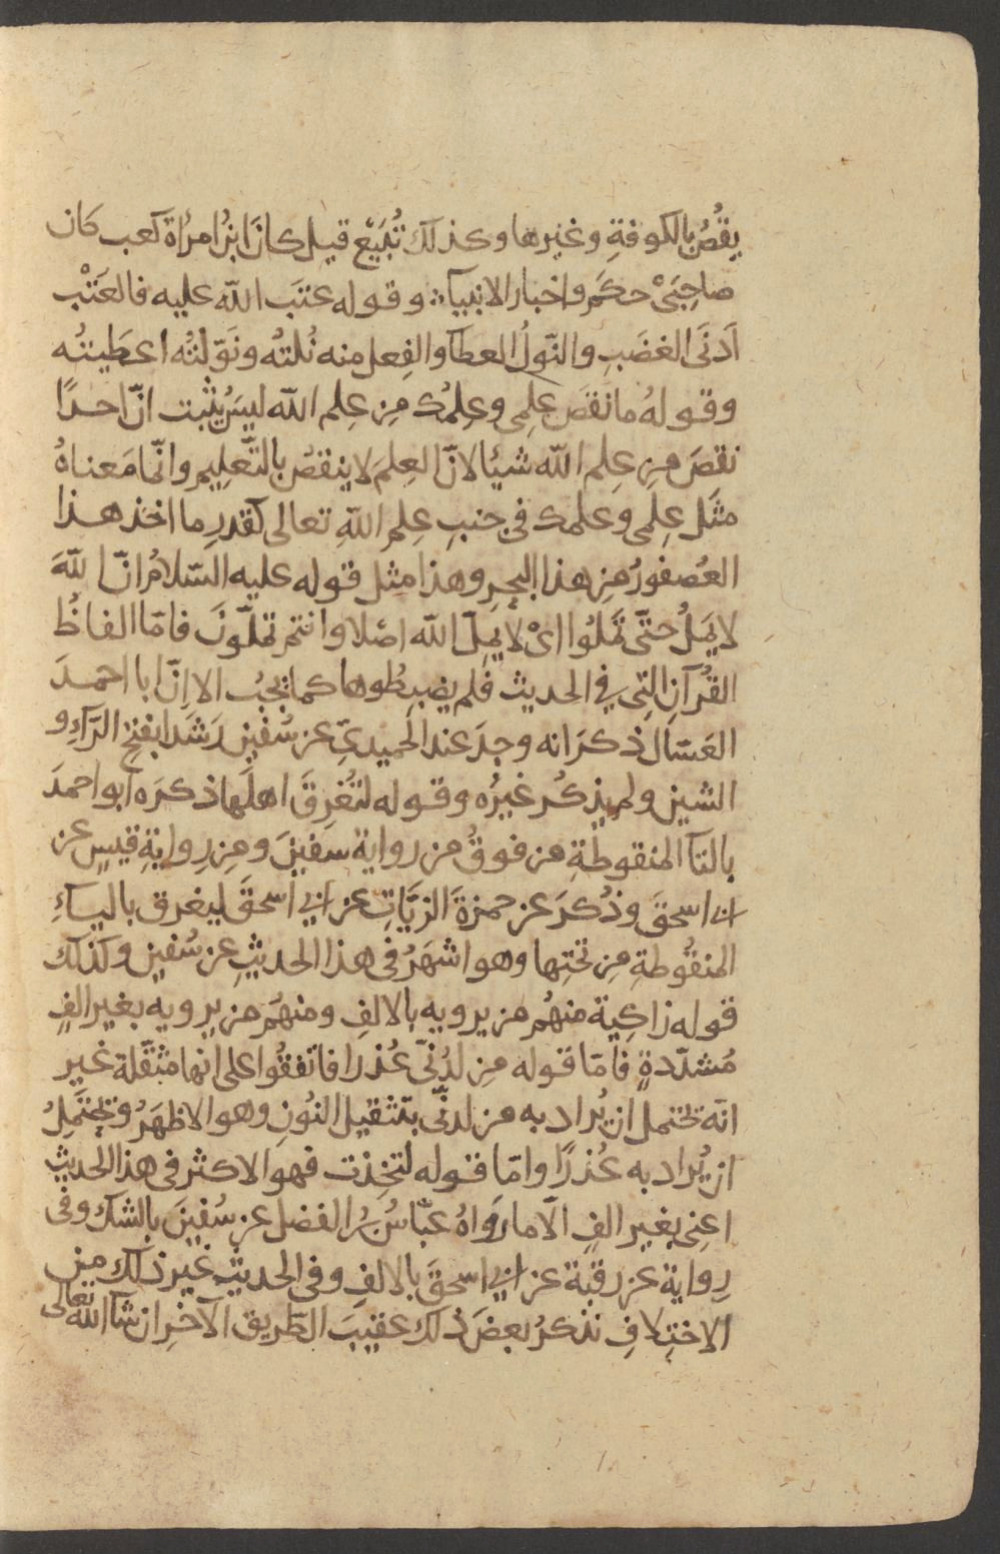 يقُصُّ بالكوفةِ وغيرها وكذلك تُبَيْع قيل كانَ ابنُ امراَة كعب كان
صاحِبَىْ حكَم واخبار الانبيآء وقوله عتَب الله عليه فالعَتْب
اَدنَى الغضَبِ والنّولُ العطآ والفِعل منه نُلتُه ونَوّلتُه اعطَيتُه
وقولهُ ما نقَصَ عِلمِى وعِلمُك مِن عِلم الله ليسَ يُثبت انّ احدًا
نقصَ مِن عِلم الله شيئا لانّ العِلمَ لا ينقصُ بالتّعلِيم وانّما مَعناهُ
مثَل عِلمى وعلمك فى جنبِ عِلم اللهِ تعالى كقدرِ ما اخذ هذا
العُصفورُ مِن هذا البحرِ وهذا مِثل قوله عليه السّلامُ انّ اللهَ
لا يَملُّ حتَّى تَملُوا اىْ لا يملّ الله اصْلا وانتم تملّونَ فامّا الفاظُ
القُرآنِ الّتِى فِي الحديث فلم يضبِطُوها كما يجبُ الا اِنّ ابا احمدَ
العَسّال ذكرَ انه وجدَ عند الحميدىّ عن سُفين رَشَدا بفتح الرّآءِ و
الشين ولم يذكُر غيرُه وقوله لتُغرِقَ اهلَها ذكرَه ابو احمدَ
بالتآ المنقوطَةِ من فوقُ من رواية سفينَ ومِن رِوايةِ قيسٍ عن
ابى اسحقَ وذُكرَ عن حمزةَ الزيَّاتِ عن ابي اسحقَ ليغرق باليآءِ
المنقُوطةِ مِن تحتِها وهو اشهَرُ فى هذا الحديثِ عن سُفين وكذلك
قوله زاكِية منهُم من يرويه بالالفِ ومنهُم من يرويه بغير الفٍ
مُشدّدةٍ فامّا قوله مِن لدُنّى عُذرا فاتفقُوا على انها مثقّلة غير
انّه يحتمل ان يُراد به من لدنّى بتثقيل النُونِ وهو الاظهَرُ ويحتَمِلُ
ان يُراد به عُذرًا وامّا قوله لتخِذت فهو الاكثر فى هذا الحديث
اعنِى بغير الفٍ الّا ما رَواهُ عبّاسُ بنُ الفضل عن سُفينَ بالشك وفى
رِواية عن رقبَة عن ابي اسحقَ بالالفِ وفى الحديثِ غير ذلك من
الاختِلافِ نذكرُ بعضَ ذلك عقيبَ الطّريق الآخرِ ان شآ الله تعالى